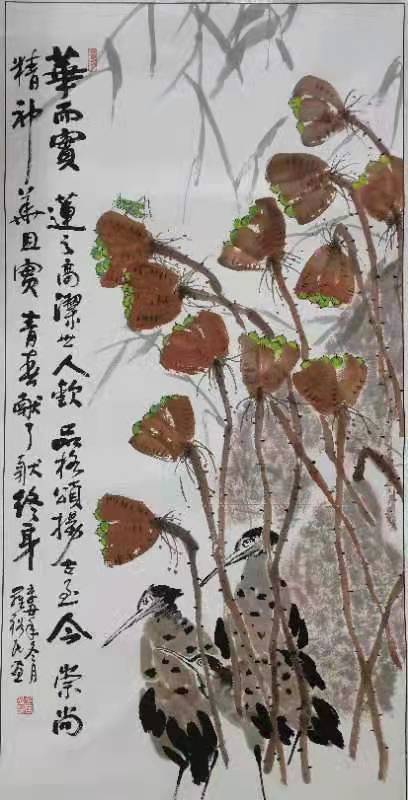 華而實 蓮之高潔世人欽 品格頌揚古至今 崇尚
精神華且實 青春献了献終身
辛丑年冬月
羅 画